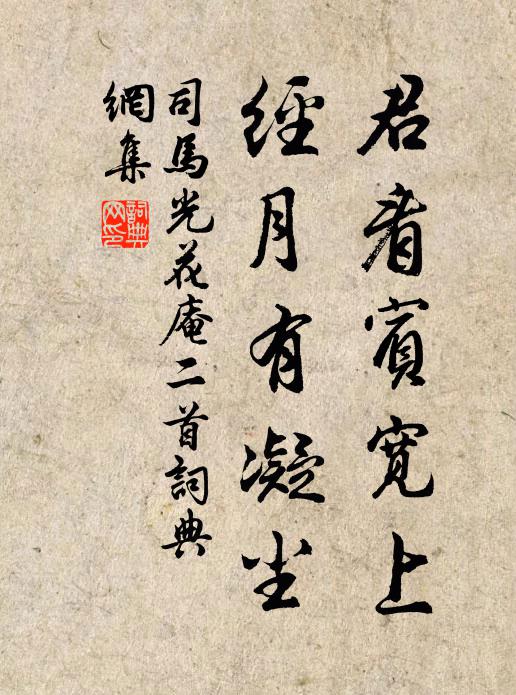 君看賓寛上
經月有凝尘
司馬光花庵二首詞典
網集
詞典
网印